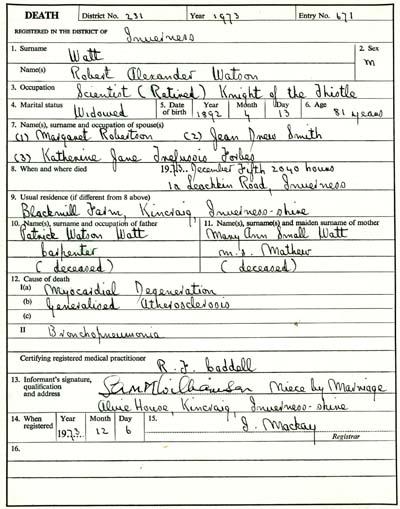 DEATH District No. 231 Year 1973 Entry No. 671
REGISTERED IN THE DISTRICT OF Inverness
1. Surname 2. Sex
Watt M
Name(s) Robert Alexander Watson
3. Occupation Scientist (Retired) Knight of the Thistle
4. Marital status 5. Date of birth Year Month Day 6. Age
Widowed 1892 4 13 81 years
7. Name(s), surname and occupation of spouse(s)
(1) Margaret Robertson (2) Jean Drew Smith
(3) Katherine Jane Trefusis Forbes
8. When and where died 1973. December Fifth 2040 hours
1a Leachkin Road, Inverness
9. Usual residence (if different from 8 above)
Blackmill Farm, Kincraig, Inverness-shire
10. Name(s), surname and occupation of father 11. Name(s), surname(s) and maiden surname of mother
Patrick Watson Watt Mary Ann Small Watt
carpenter m.s. Mathew
(deceased) (deceased)
12. Cause of death
I(a) Myocardial Degeneration
(b) Generalised Atherosclerosis
(c)
II Bronchopneumonia
Certifying registered medical practitioner R. J. Caddell
13. Informant's signature, qualification and address Williamson Niece by Marriage
Alvie House, Kincraig, Inverness-shire
14. When registered Year Month Day 15.
1973 12 6 J. Mackay
Registrar
16.